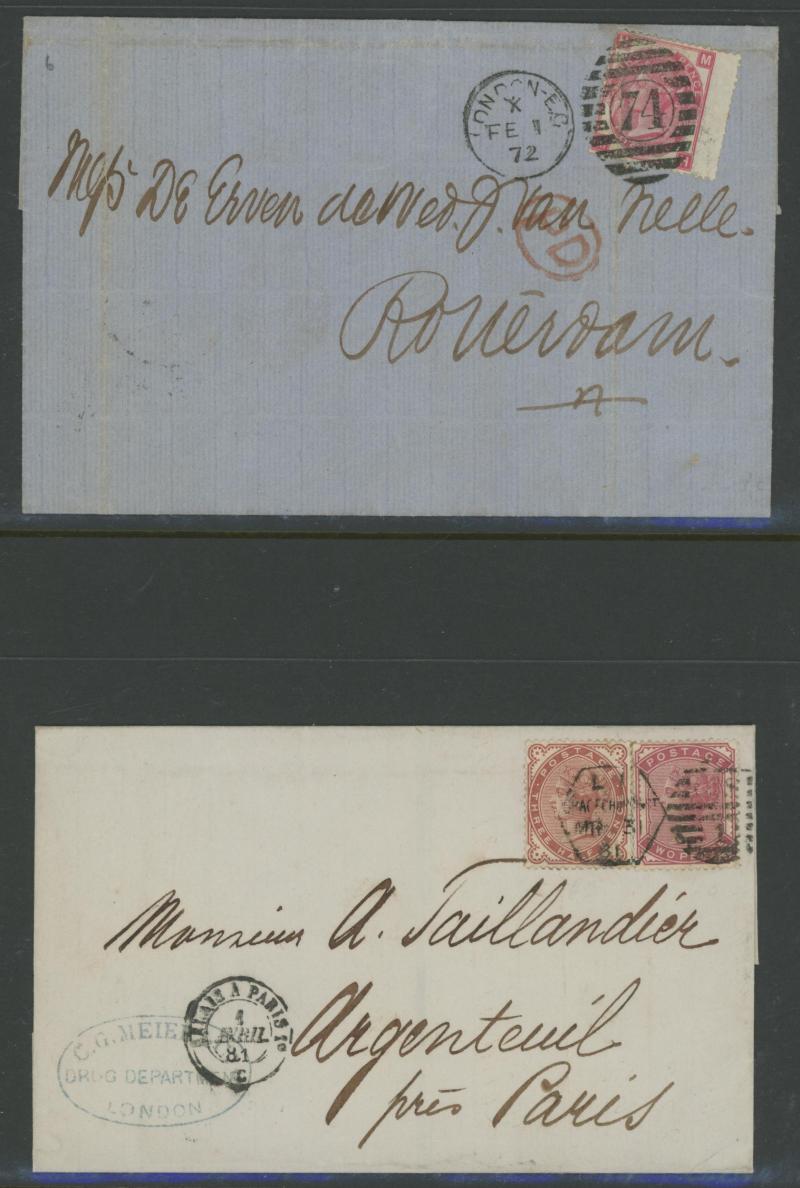 6
LONDON-E.C
X
FE 1
72
74
M
PENCE
Messrs De Erven de Wed. J. Van Nelle.
PD
Rotterdam.
POSTAGE
THREE HALF PENCE
POSTAGE
L
GRACECHURCH
MR 31
81
1
Monsieur A. Taillandiér
CALAIS A PARIS 1o
1
AVRIL
81
C
Argenteuil
C.G. MEIER
DRUG DEPARTMENT
LONDON
près Paris